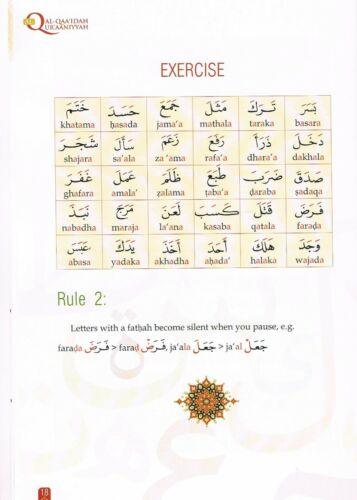 AL-QAA'IDAH
QURAANIYYAH
EXERCISE
بَسَرَ تَرَكَ مَثَلَ جَمَعَ حَسَدَ خَتَمَ
khatama ḥasada jama'a mathala taraka basara
دَخَلَ ذَرَأَ رَفَعَ زَعَمَ سَأَلَ شَجَرَ
shajara sa'ala za 'ama rafa'a dhara'a dakhala
صَدَقَ ضَرَبَ طَبَعَ ظَلَمَ عَمَلَ غَفَرَ
ghafara amala' ẓalama ṭaba'a ḍaraba ṣadaqa
فَرَضَ قَتَلَ كَسَبَ لَعَنَ مَرَجَ نَبَذَ
nabadha maraja la'ana kasaba qatala faraḍa
وَجَدَ هَلَكَ أَحَدَ أَخَذَ يَدَكَ عَبَسَ
abasa yadaka akhadha aḥada' halaka wajada
Rule 2:
Letters with a fatḥah become silent when you pause, e.g.
faraḍa فَرَضَ > faraḍ فَرَضْ, ja'ala جَعَلَ > ja'al جَعَلْ
18